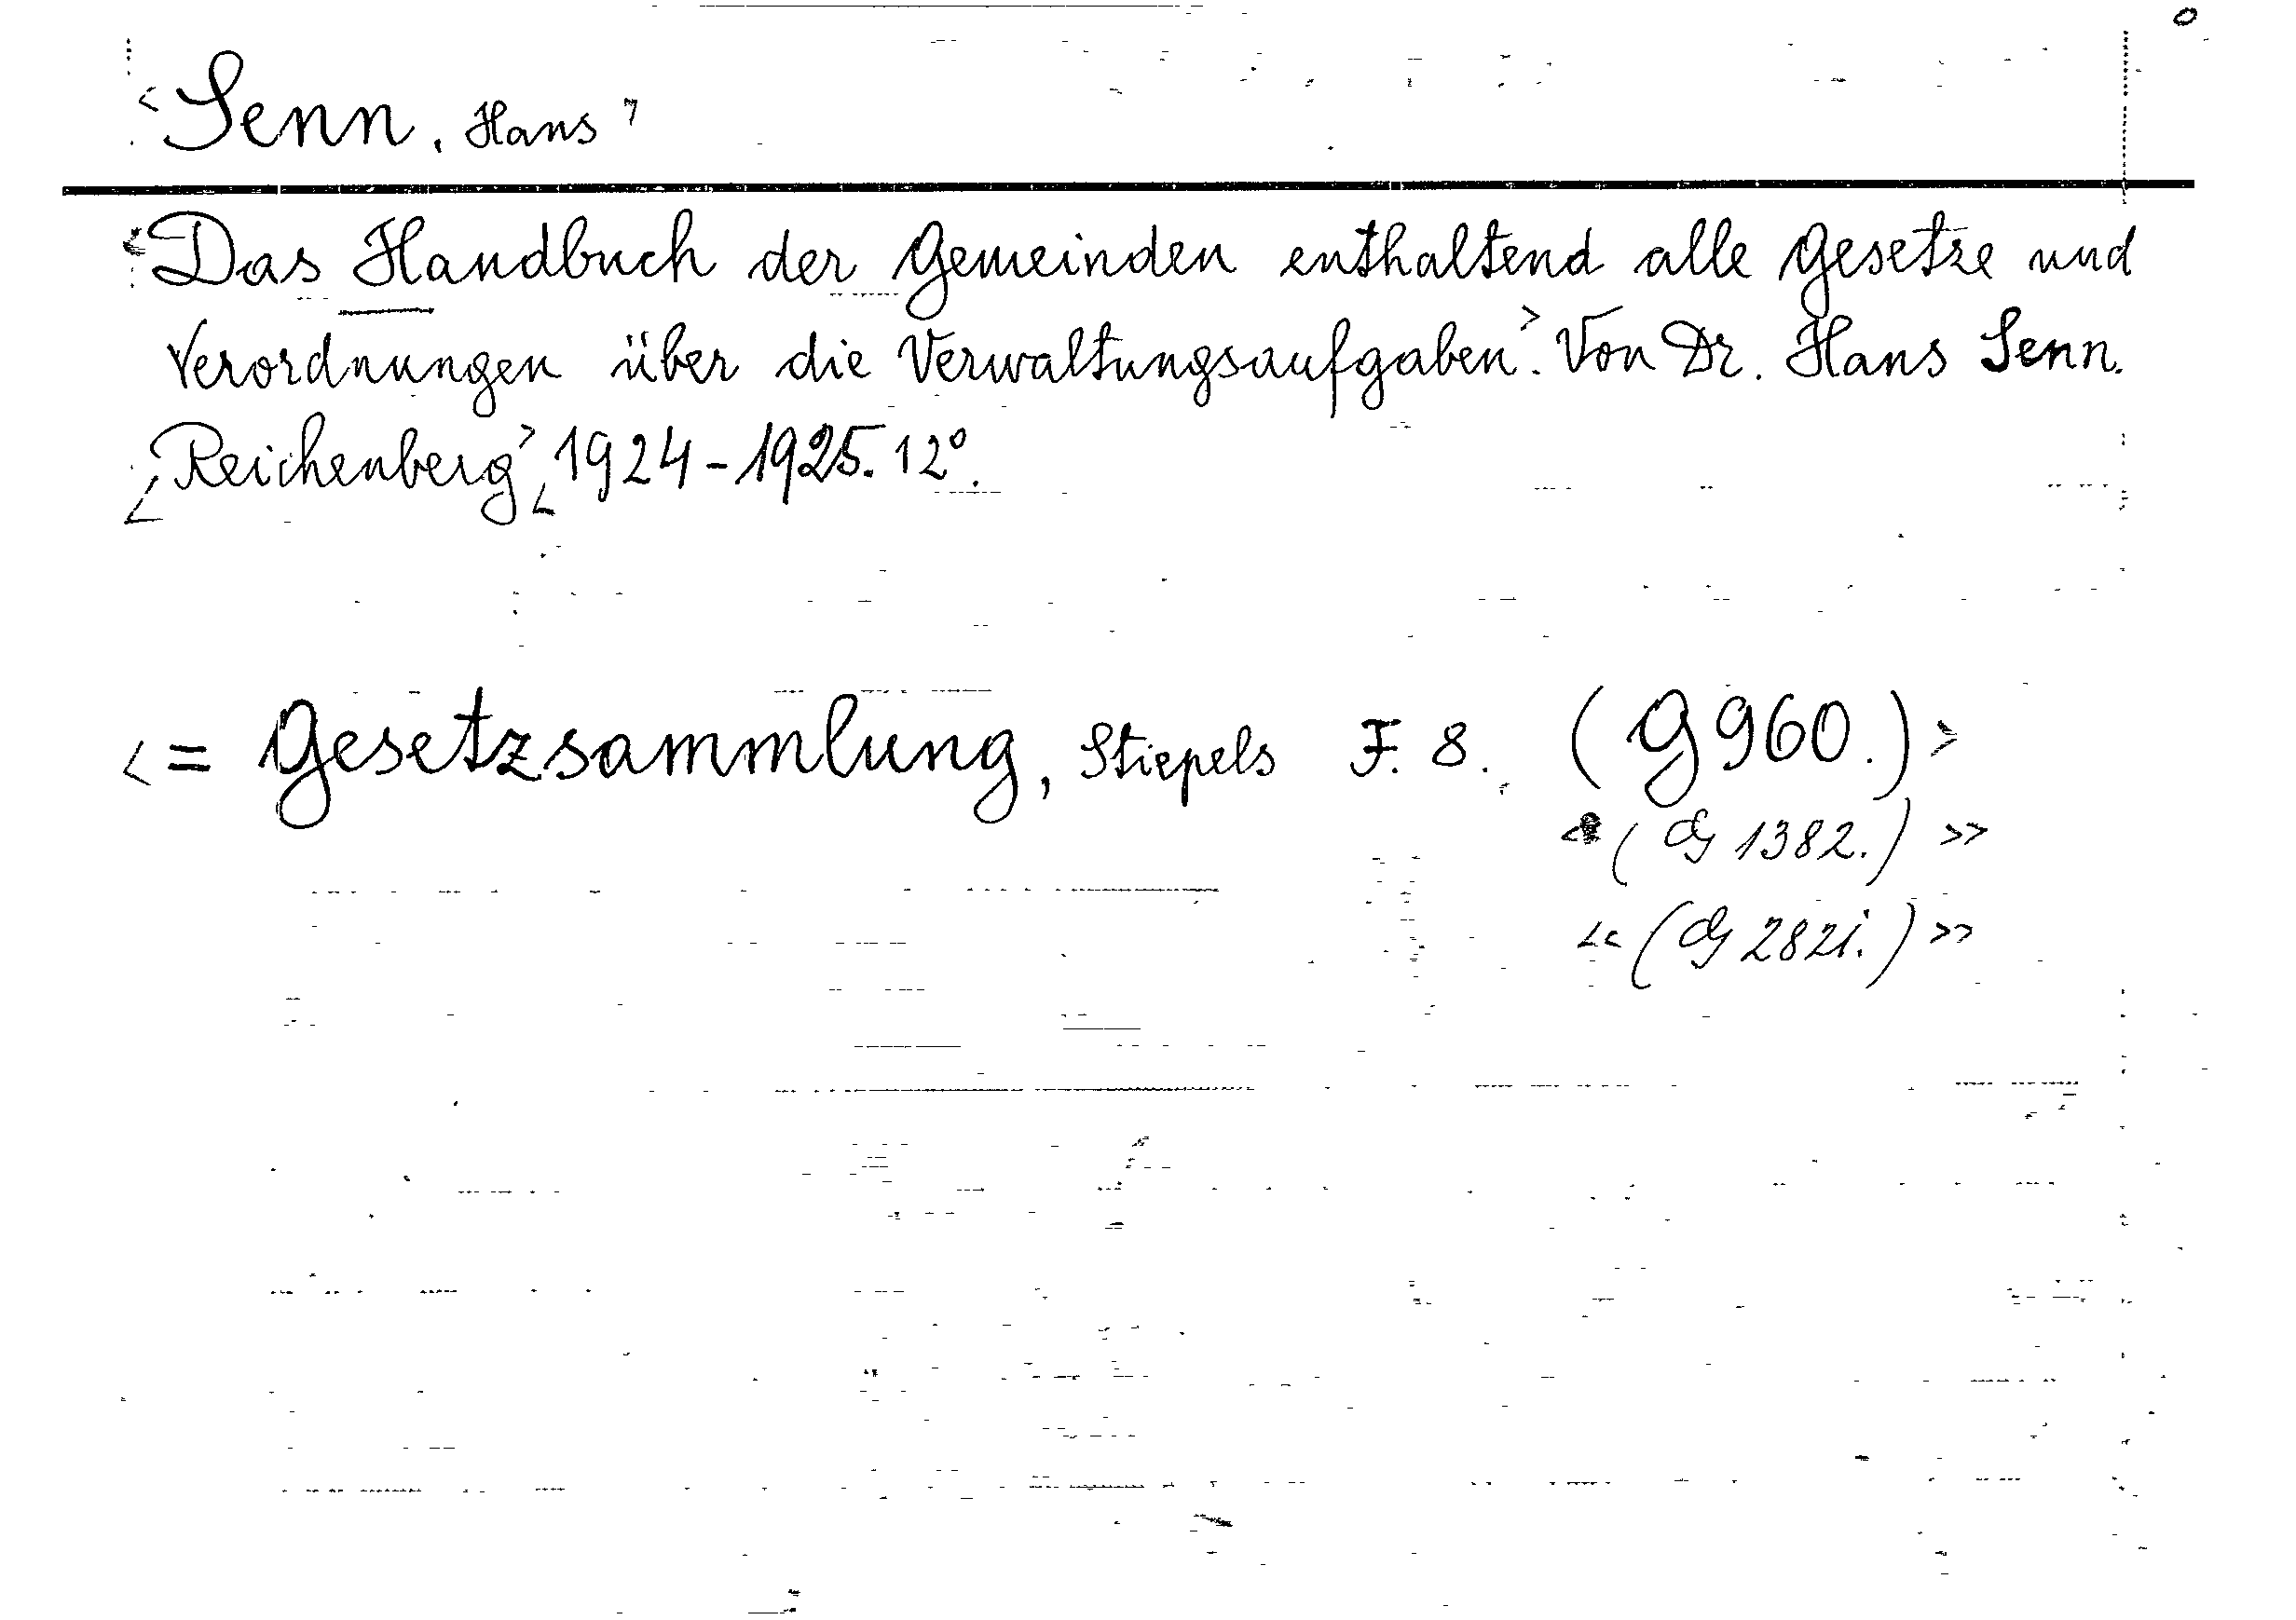 <Senn, Hans>
<Das Handbuch der Gemeinden enthaltend alle Gesetze und
Verordnungen über die Verwaltungsaufgaben>. Von Dr. Hans Senn.
<Reichenberg> <1924-1925. 12°.
<= Gesetzsammlung, Stiepels F. 8. (G 960.)>
(G 1382.) >>
<< (G 282i.) >>